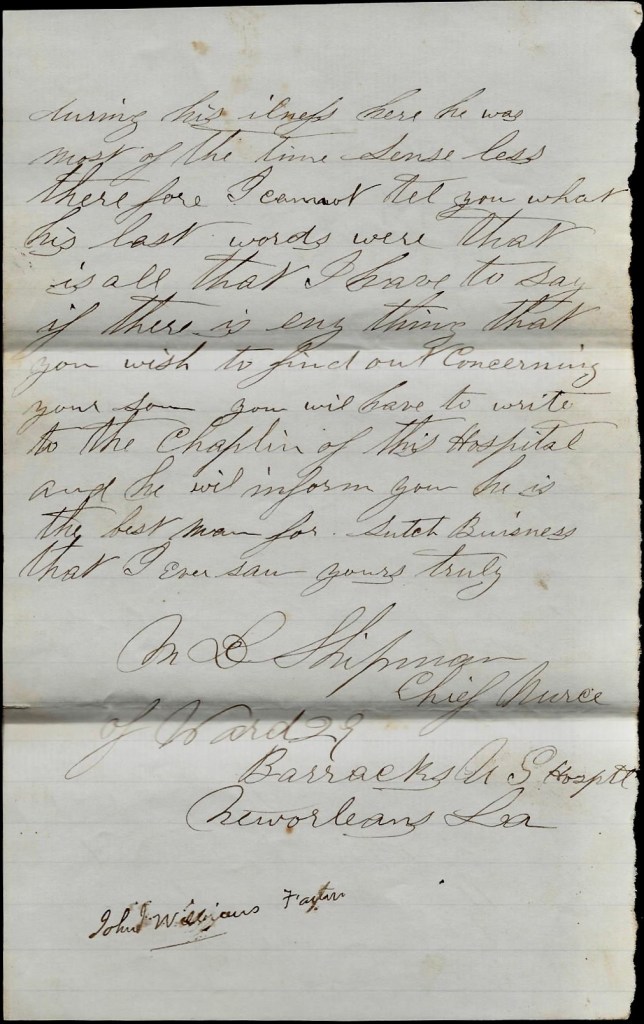 during his ilness here he was
most of the time sense less
therefore I cannot tel you what
his last words were that
is all that I have to say
if there is eny thing that
you wish to find out Concerning
your son you wil have to write
to the Chaplin of this Hospital
and he wil inform you he is
the best man for Sutch Buisness
that I Ever saw yours truly
M D Shipman
Chief Nurce
of Ward 29
Barracks U S Hosptl
Neworleans La
John J Williams